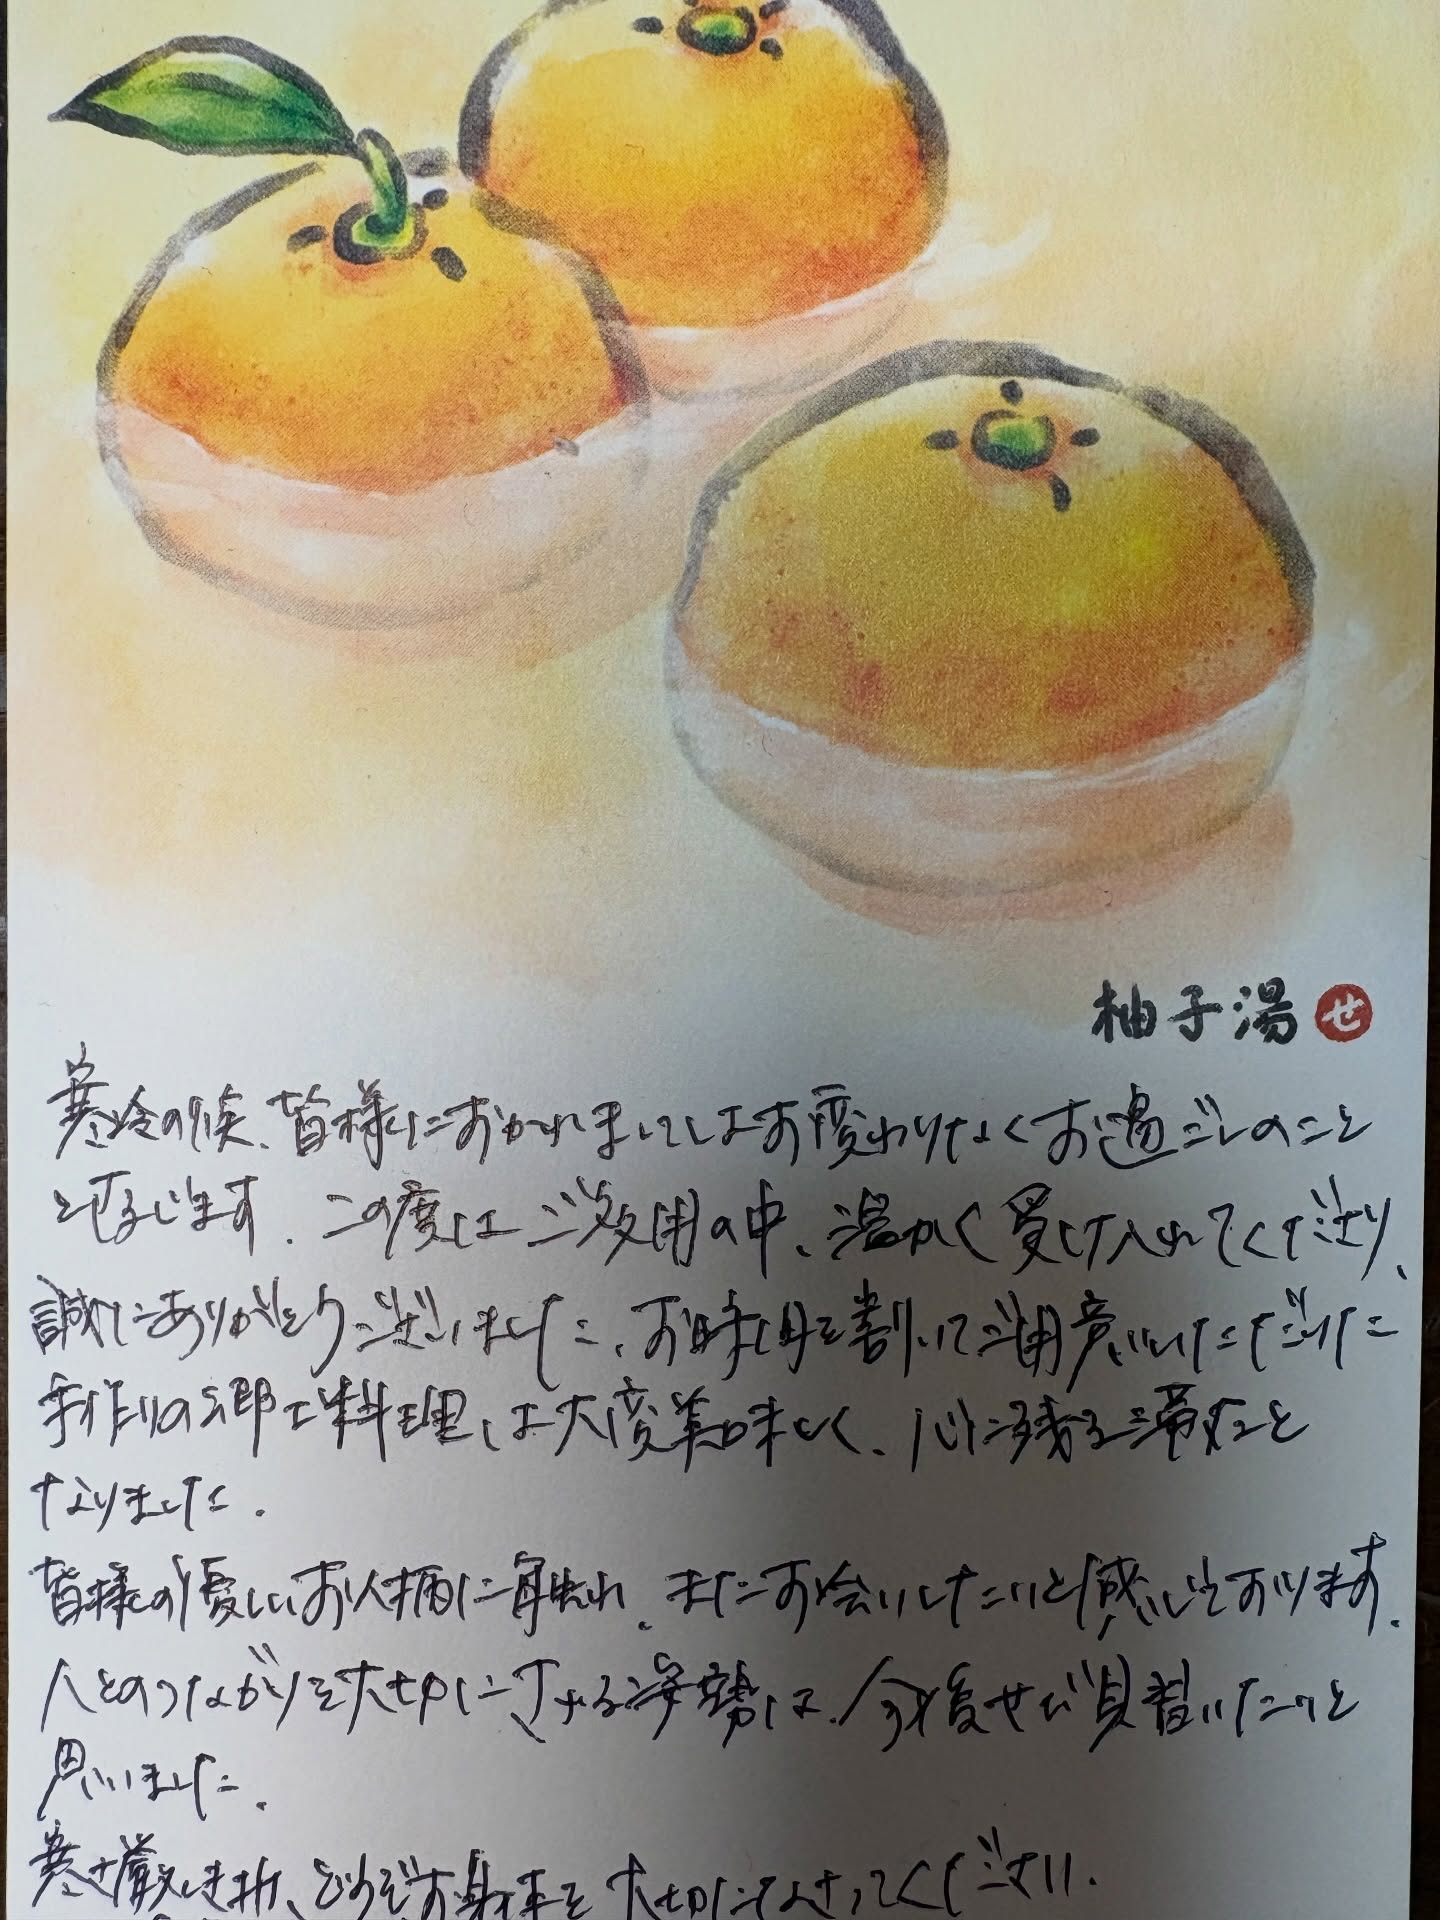 柚子湯 せ
寒冷の候、皆様におかれましてはお変わりなくお過ごしのこと
と存じます。この度はご多用の中、温かく受け入れてくださり、
誠にありがとうございました。お時間を割いてご用意いただいた
手作りの郷土料理は大変美味しく、心に残るご馳走と
なりました。
皆様の優しいお人柄に触れ、またお会いしたいと感じております。
人とのつながりを大切にされる姿勢は、今後ぜひ見習いたいと
思いました。
寒さ厳しき折、どうぞお身体を大切になさってください。